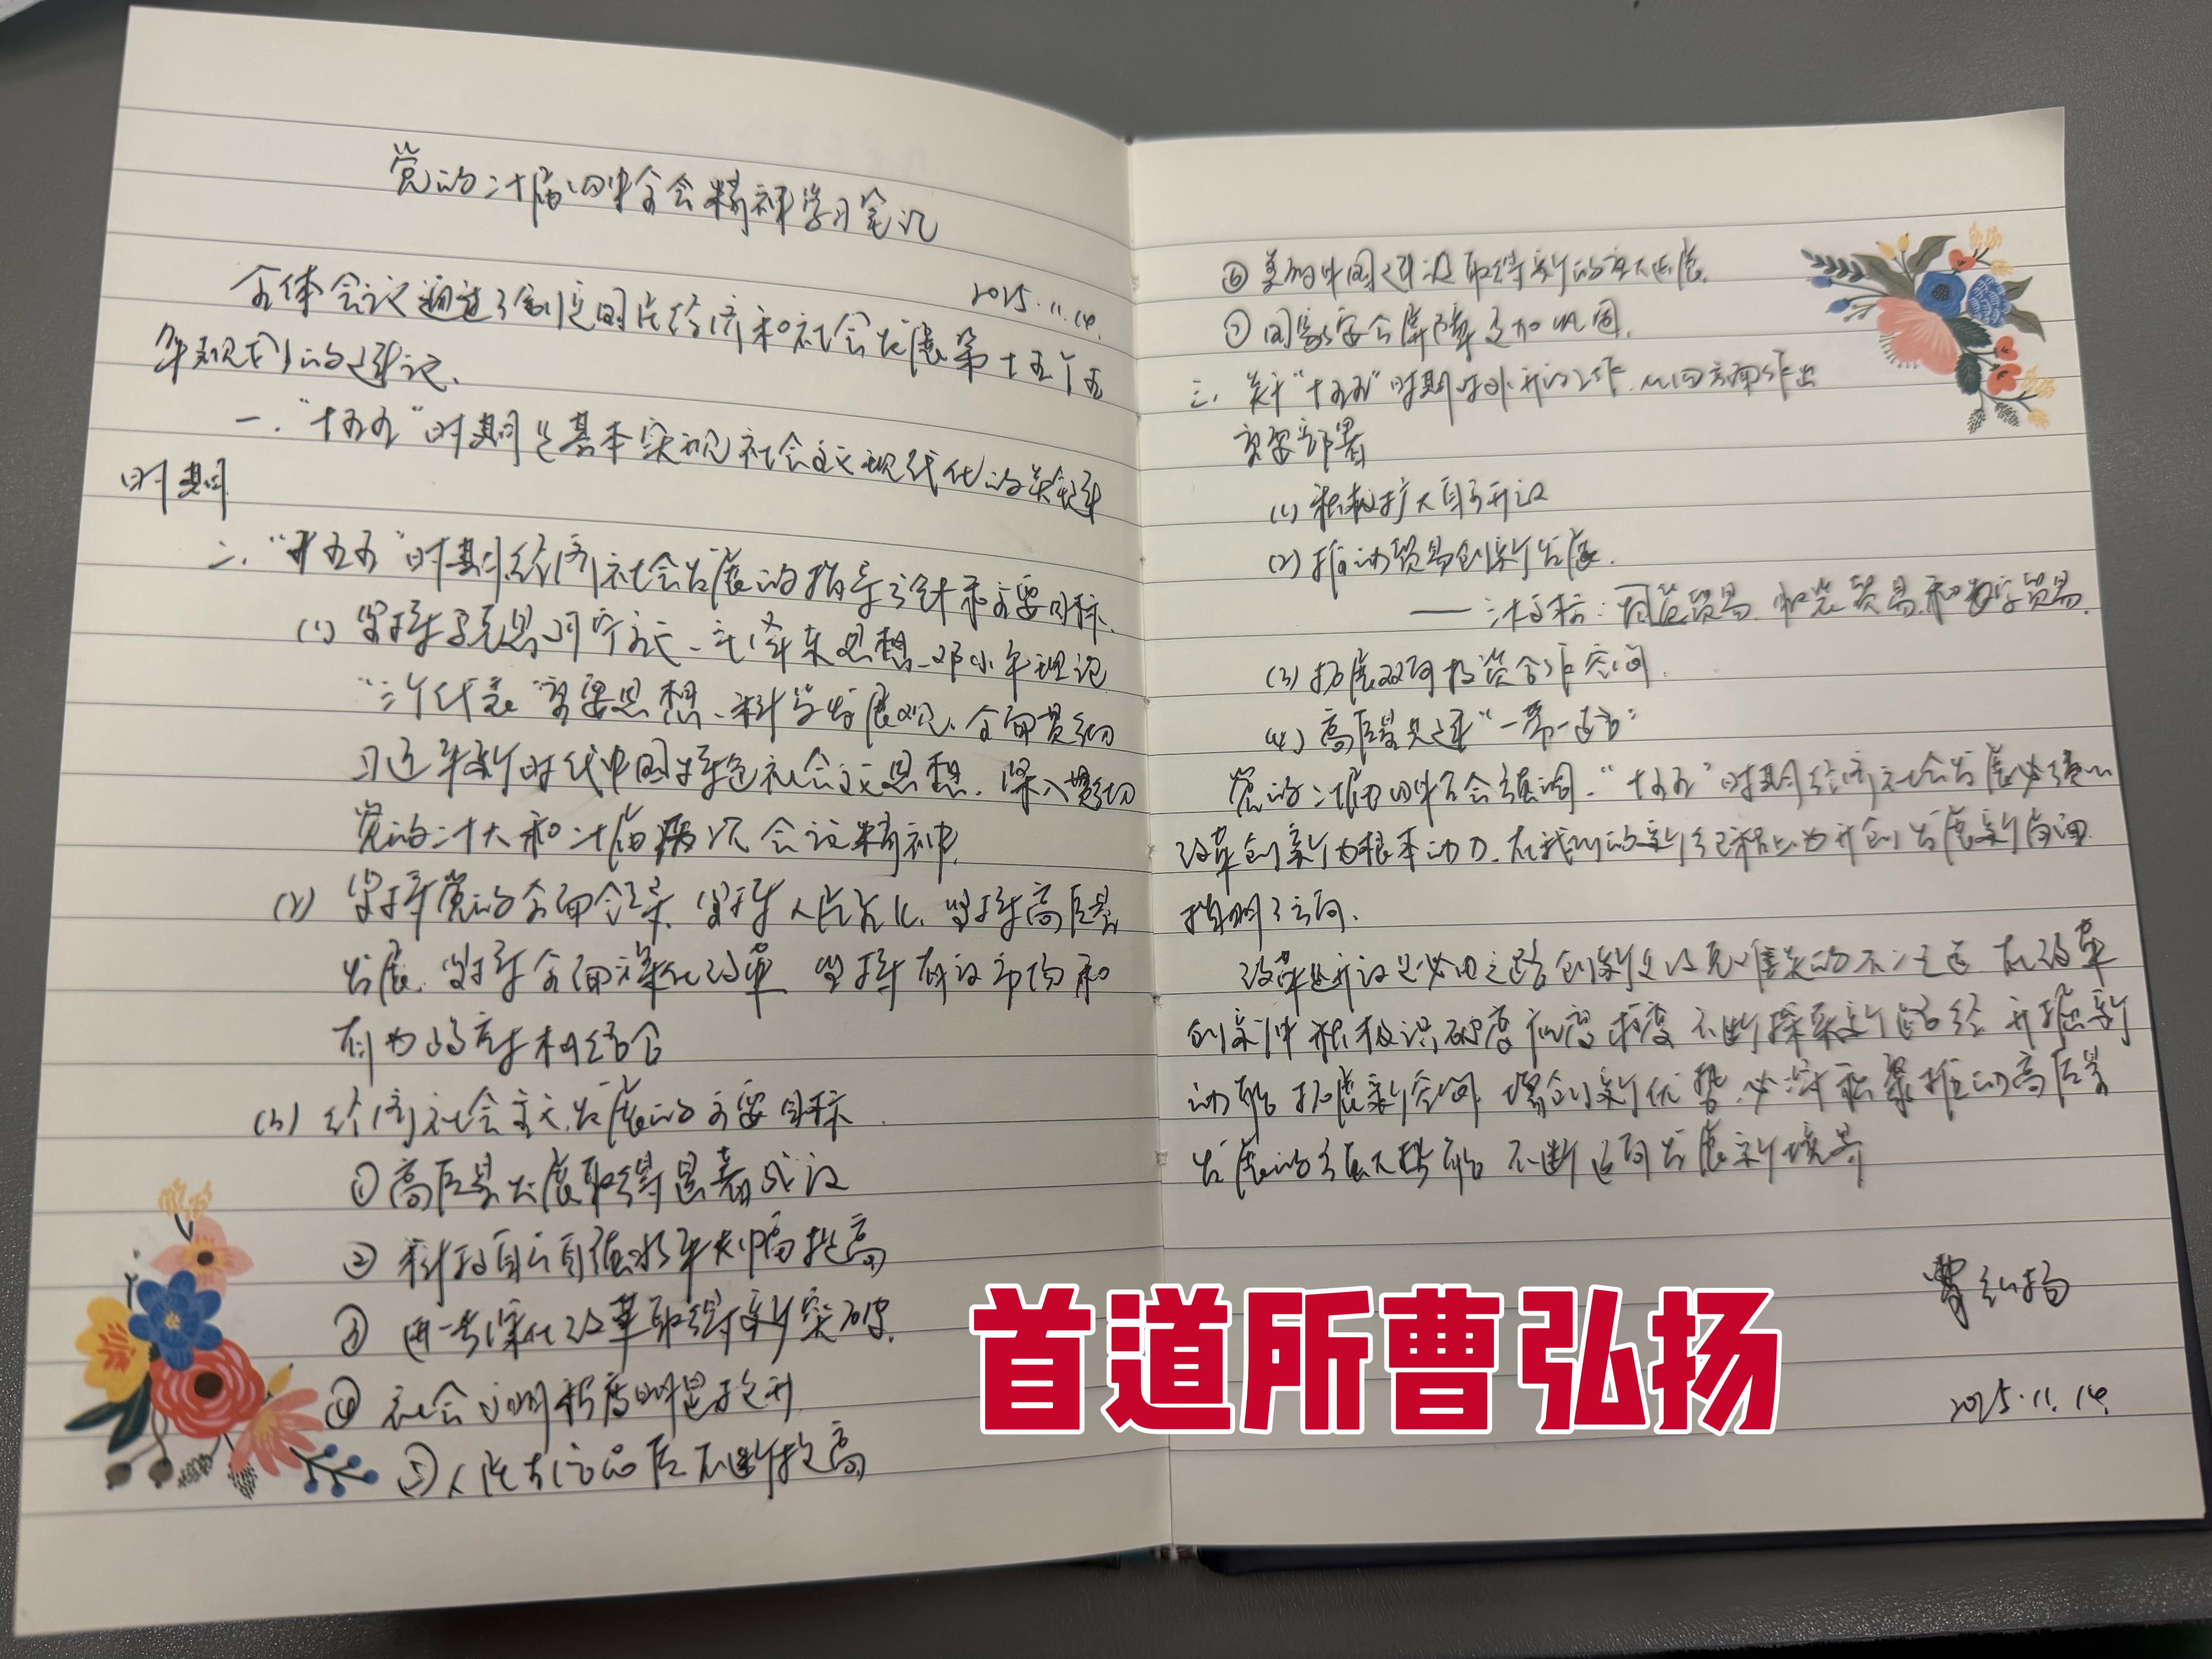 党的二十届四中全会精神学习笔记
2025.11.14.
全体会议通过了制定国民经济和社会发展第十五个五
年规划的建议.
一."十五五"时期是基本实现社会主义现代化的关键
时期
二."十五五"时期经济社会发展的指导方针和主要目标.
(1) 坚持马克思列宁主义、毛泽东思想、邓小平理论
"三个代表"重要思想、科学发展观、全面贯彻
习近平新时代中国特色社会主义思想.深入贯彻
党的二十大和二十届历次会议精神.
(2) 坚持党的全面领导.坚持人民至上.坚持高质量
发展.坚持全面深化改革 坚持有效市场和
有为政府相结合
(3) 经济社会主义发展的主要目标.
①高质量发展取得显著成效
②科技自立自强水平大幅提高
③进一步深化改革取得新突破.
④社会文明程度明显提升
⑤人民生活品质不断提高
⑥美丽中国建设取得新的重大进展.
⑦国家安全屏障更加巩固.
三.关于"十五五"时期对外开放工作.从四方面作出
重要部署
(1) 积极扩大自主开放
(2) 推动贸易创新发展.
——三大支柱:货物贸易.服务贸易.和数字贸易.
(3) 拓展双向投资合作空间.
(4) 高质量共建"一带一路"
党的二十届四中全会强调."十五五"时期经济社会发展必须以
改革创新为根本动力.在我们的新征程上为开创发展新局面
指明了方向.
改革开放是必由之路 创新是攻克难关的不二之选 在改革
创新中积极识变应变求变 不断探索新路径 开掘新
动能 拓展新空间 塑创新优势.必将积聚推动高质量
发展的强大势能 不断迈向发展新境界
曹弘扬
2025.11.14.
首道所曹弘扬